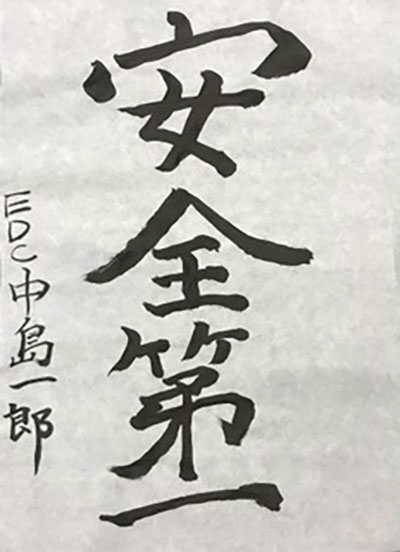 安全第一
EDC中島一郎